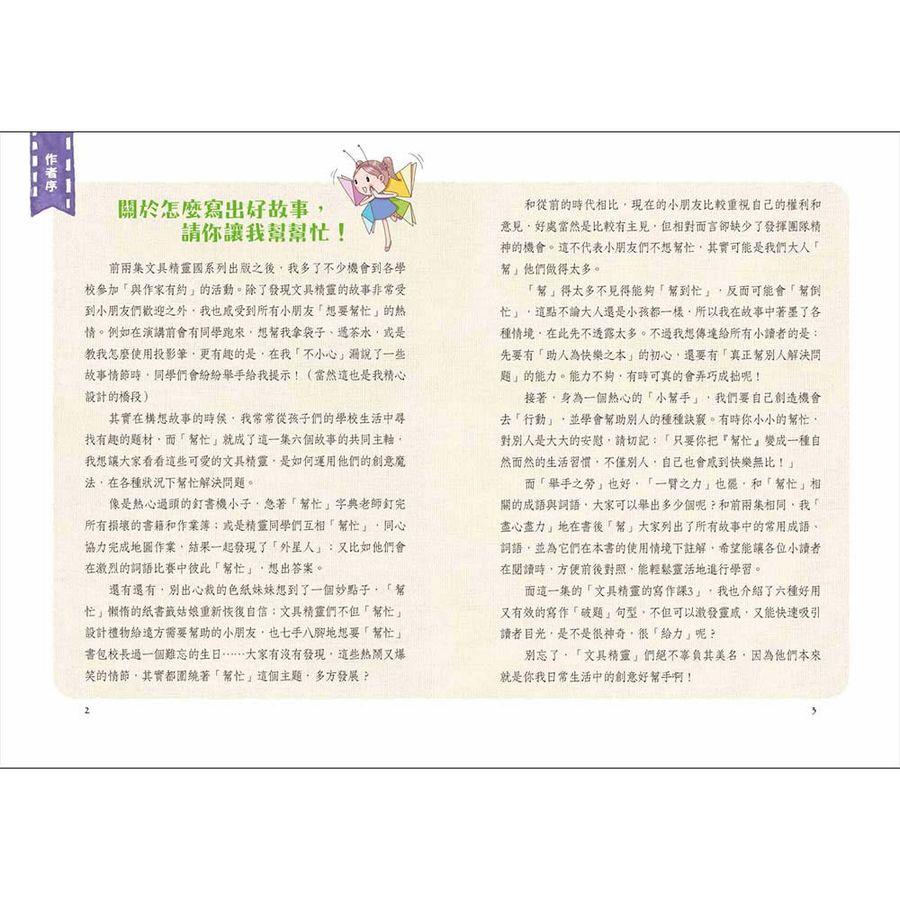 作者序
關於怎麼寫出好故事，
請你讓我幫幫忙！
前兩集文具精靈國系列出版之後，我多了不少機會到各學
校參加「與作家有約」的活動。除了發現文具精靈的故事非常受
到小朋友們歡迎之外，我也感受到所有小朋友「想要幫忙」的熱
情。例如在演講前會有同學跑來，想幫我拿袋子、遞茶水，或是
教我怎麼使用投影筆，更有趣的是，在我「不小心」漏說了一些
故事情節時，同學們會紛紛舉手給我提示！（當然這也是我精心
設計的橋段）
其實在構想故事的時候，我常常從孩子們的學校生活中尋
找有趣的題材，而「幫忙」就成了這一集六個故事的共同主軸，
我想讓大家看看這些可愛的文具精靈，是如何運用他們的創意魔
法，在各種狀況下幫忙解決問題。
像是熱心過頭的釘書機小子，急著「幫忙」字典老師釘完
所有損壞的書籍和作業簿；或是精靈同學們互相「幫忙」，同心
協力完成地圖作業，結果一起發現了「外星人」；又比如他們會
在激烈的詞語比賽中彼此「幫忙」，想出答案。
還有還有，別出心裁的色紙妹妹想到了一個妙點子，「幫
忙」懶惰的紙書籤姑娘重新恢復自信；文具精靈們不但「幫忙」
設計禮物給遠方需要幫助的小朋友，也七手八腳地想要「幫忙」
書包校長過一個難忘的生日……大家有沒有發現，這些熱鬧又爆
笑的情節，其實都圍繞著「幫忙」這個主題，多方發展？
2
和從前的時代相比，現在的小朋友比較重視自己的權利和
意見，好處當然是比較有主見，但相對而言卻缺少了發揮團隊精
神的機會。這不代表小朋友們不想幫忙，其實可能是我們大人「
幫」他們做得太多。
「幫」得太多不見得能夠「幫到忙」，反而可能會「幫倒
忙」，這點不論大人還是小孩都一樣，所以我在故事中著墨了各
種情境，在此先不透露太多。不過我想傳達給所有小讀者的是：
先要有「助人為快樂之本」的初心，還要有「真正幫別人解決問
題」的能力。能力不夠，有時可真的會弄巧成拙呢！
接著，身為一個熱心的「小幫手」，我們要自己創造機會
去「行動」，並學會幫助別人的種種訣竅。有時你小小的幫忙，
對別人是大大的安慰，請切記：「只要你把『幫忙』變成一種自
然而然的生活習慣，不僅別人，自己也會感到快樂無比！」
而「舉手之勞」也好，「一臂之力」也罷，和「幫忙」相
關的成語與詞語，大家可以舉出多少個呢？和前兩集相同，我「
盡心盡力」地在書後「幫」大家列出了所有故事中的常用成語、
詞語，並為它們在本書的使用情境下註解，希望能讓各位小讀者
在閱讀時，方便前後對照，能輕鬆靈活地進行學習。
而這一集的「文具精靈的寫作課3」，我也介紹了六種好用
又有效的寫作「破題」句型，不但可以激發靈感，又能快速吸引
讀者目光，是不是很神奇，很「給力」呢？
別忘了，「文具精靈」們絕不辜負其美名，因為他們本來
就是你我日常生活中的創意好幫手啊！
3